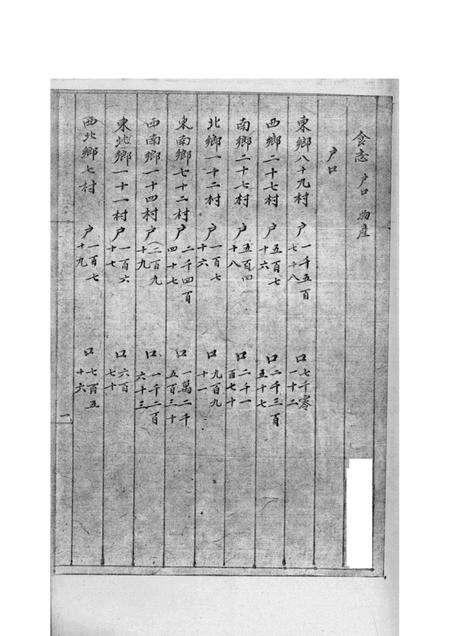 食志 户口 物產
户口
東鄉八十九村 户一千五百七十八 口七千零一十二
西鄉二十七村 户五百七十六 口二千三百五十七
南鄉二十七村 户五百四十八 口二千一百七十
北鄉一十二村 户一百七十六 口九百九十一
東南鄉七十二村 户二千四百四十七 口一萬二千五百三十
西南鄉一十四村 户二百九十九 口一千二百六十三
東北鄉一十一村 户一百六十七 口六百七十
西北鄉七村 户一百七十九 口七百五十六
一